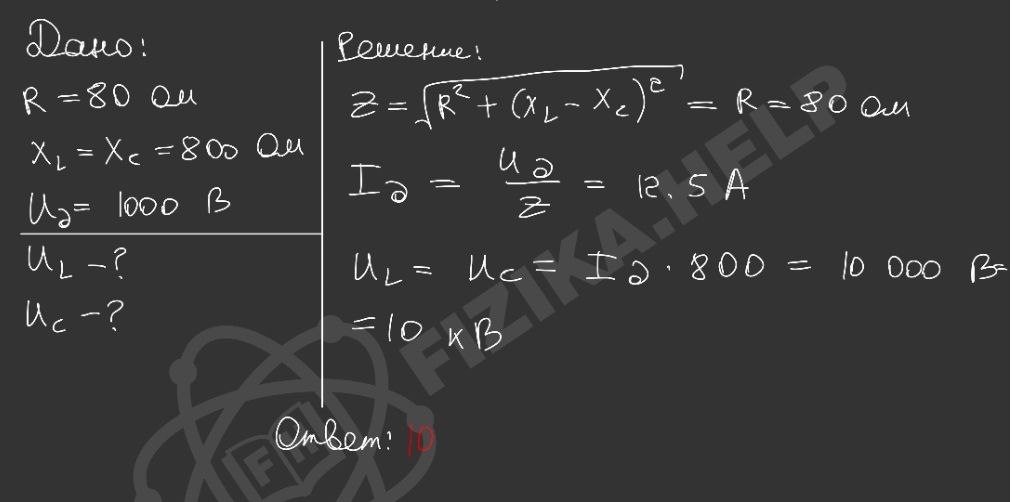 Дано:
R = 80 Ом
X_L = X_C = 800 Ом
U_д = 1000 В
U_L - ?
U_C - ?
Решение:
Z = √(R² + (X_L - X_C)²) = R = 80 Ом
I_д = U_д / Z = 12.5 А
U_L = U_C = I_д · 800 = 10 000 В =
= 10 кВ
Ответ: 10
FIZIKA.HELP